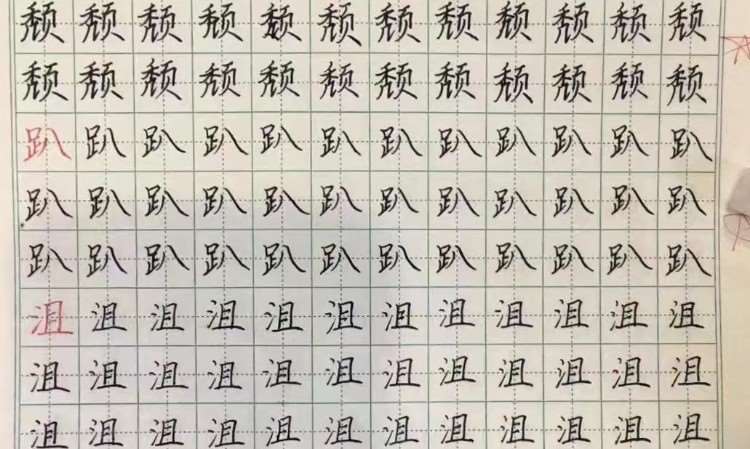 颓颓颓颓颓颓颓颓颓颓颓颓
颓颓颓颓颓颓颓颓颓颓颓颓
趴趴趴趴趴趴趴趴趴趴趴趴
趴趴趴趴趴趴趴趴趴趴趴趴
趴趴趴趴趴趴趴趴趴趴趴趴
沮沮沮沮沮沮沮沮沮沮沮沮
沮沮沮沮沮沮沮沮沮沮沮沮
沮沮沮沮沮沮沮沮沮沮沮沮